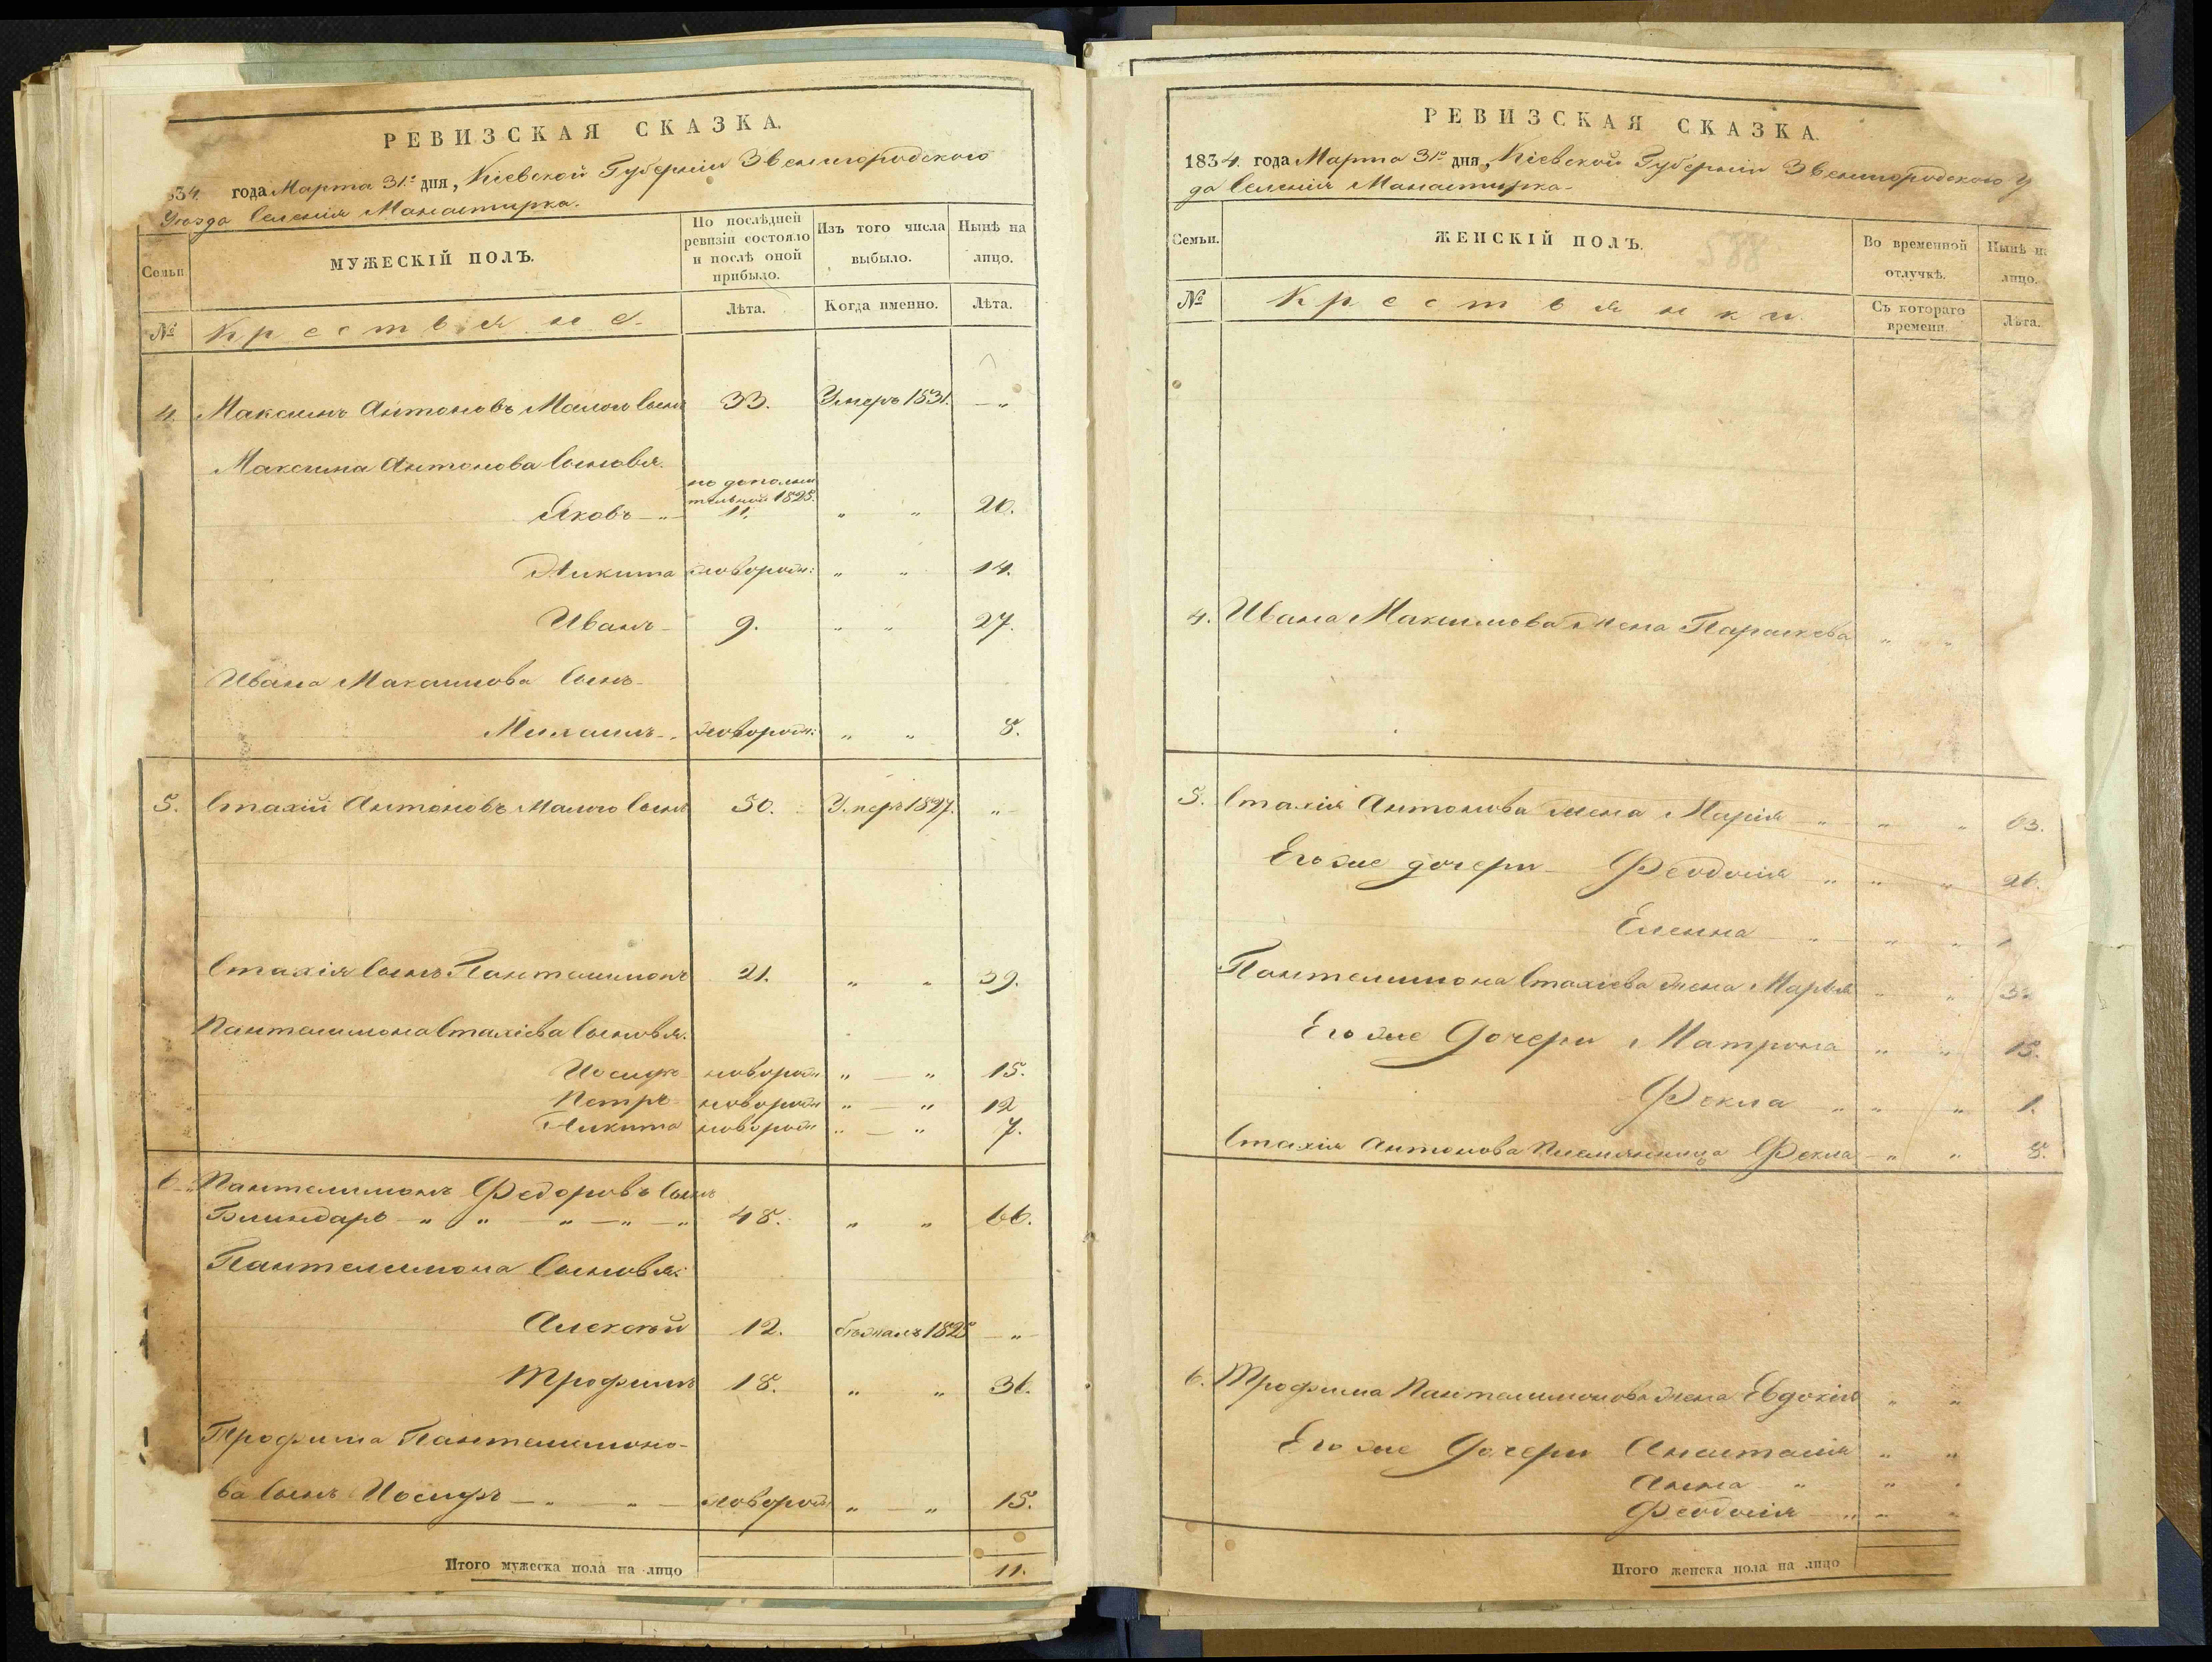 РЕВИЗСКАЯ СКАЗКА.
834. года Марта 31го дня, Кіевской Губерніи Звенигородского
Уѣзда Селенія Манастирка.
Семьи
МУЖЕСКІЙ ПОЛЪ.
По послѣдней ревизіи состояло и послѣ оной прибыло.
Изъ того числа выбыло.
Нынѣ на лицо.
№
Крестьяне.
Лѣта.
Когда именно.
Лѣта.
4. Максимъ Антоновъ Малого Сынъ 33. Умеръ 1831. — „
Максима Антонова Сыновья.
по дополни
тельной 1825.
Яковъ — „ — 11. „ „ 20.
Никита новорож: „ „ 14.
Иванъ — 9. „ „ 27.
Ивана Максимова Сынъ —
Михаилъ — „ новорож: „ „ 8.
5. Стахій Антоновъ Малого Сынъ 50. Умеръ 1827. „
Стахія Сынъ Пантелимонъ 21. „ „ 39.
Пантелимона Стахіева Сыновья.
Иосифъ новорож „ — „ 15.
Петръ новорож „ — „ 12
Никита новорож „ — „ 7.
6. Пантелимонъ Федоровъ Сынъ
Блиндарь — „ „ — „ — „ — „ 48. „ „ 66.
Пантелимона Сыновья:
Алексѣй 12. бѣжалъ 1825 — „
Трофимъ 18. „ „ 36.
Трофима Пантелимоно-
ва Сынъ Иосифъ — „ — „ — новорож „ — „ 15.
Итого мужеска пола на лицо 11.
РЕВИЗСКАЯ СКАЗКА.
1834. года Марта 31го дня, Кіевской Губерніи Звенигородского У
да Селенія Манастирка —
Семьи.
ЖЕНСКІЙ ПОЛЪ.
588
Во временной отлучкѣ.
Нынѣ на лицо.
№
Крестьянки.
Съ котораго времени.
Лѣта.
4. Ивана Максимова Жена Параскева „ „
5. Стахія Антонова жена Марія — „ — „ „ 63.
Его же дочери — Феодосія „ — „ „ 26.
Еленна „ — „ „
Пантелимона Стахіева Жена Марья „ „ 3
Его же Дочери Матрона „ „ 15.
Фекла „ — „ „ 1.
Стахія Антонова Племянница Фекла — „ „ 8.
6. Трофима Пантелимонова Жена Евдокія „ „
Его же Дочери Анастасія „ „
Анна „ „
Феодосія — „ „
Итого женска пола на лицо